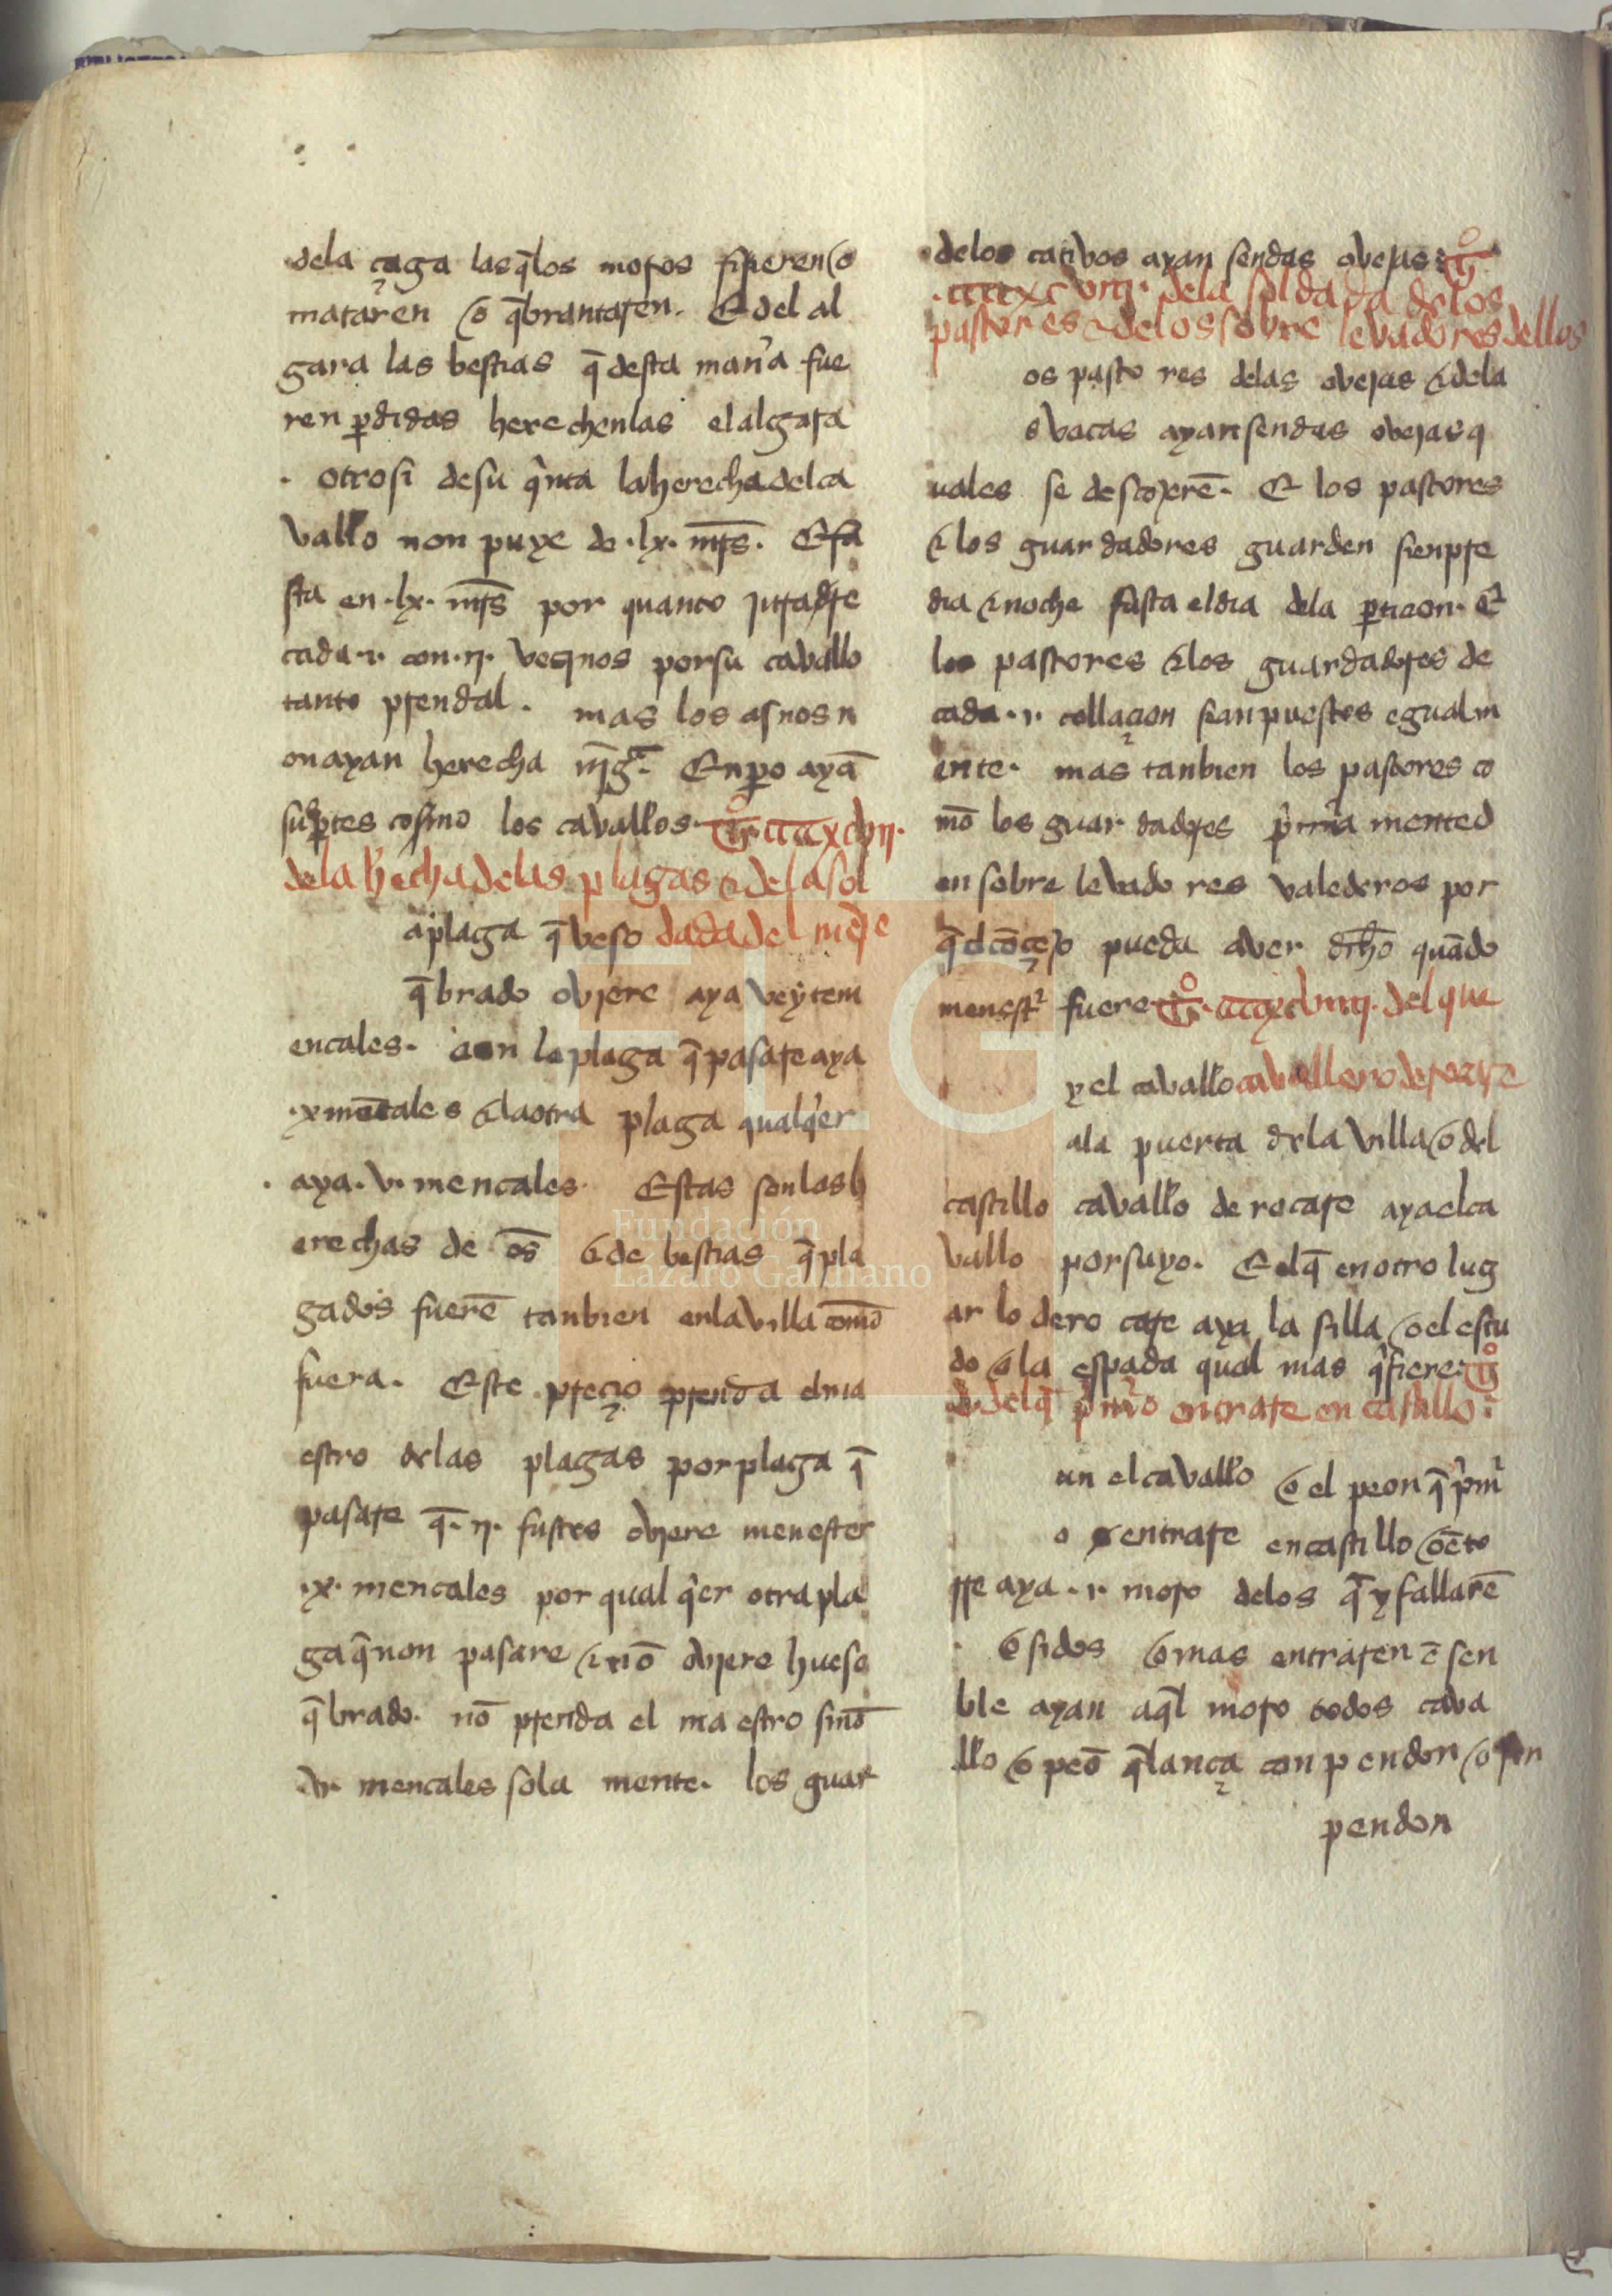 dela çaga las q̄los moros firieren o
mataren o q̄brantaren. E del al
gara las bestias q̄ desta man̉a fue
ren ꝑdidas herechenlas el algara
. otrosi de su q̉nta la herecha del ca
vallo non puye de .lx. mr̄s. E fa
sta en .lx. mr̄s por quanto juradre
cada .i. con .ij. veçinos por su cavallo
tanto prendal. mas los asnos n
on ayan herecha nīg̃. Enꝑo ayā
sus ꝑtes cosmo los cavallos. tº. ccccxcvij.
dela h̉echa delas plagas & dela sol
a plaga q̄ veso dada del meje
q̄brado oviere aya veyte m
encales. con la plaga q̄ pasare aya
.x mēcales & la otra plaga qualq̉er
aya .v. mencales. Estas son las h
erechas de os̄ & de bestias q̄ pla
gados fuerē tanbien en la villa comō
fuera. Este preçio prenda el ma
estro delas plagas por plaga q̄
pasare q̄ .ij. fustes oviere menester
.x. mencales por qual q̉er otra pla
ga q̄ non pasare & nō oviere hueso
q̄brado. nō prenda el maestro sinō
.v. mencales sola mente. los guar
delos cativos ayan sendas ovejas tº
.ccccxcviij. dela soldada delos
pastores & delos sobre levadores dellos
os pastores delas ovejas & dela
s vacas ayan sendas ovejas q
uales se descoxerē. E los pastores
& los guardadores guarden sienpre
dia & noche fasta el dia dela ꝑticion. E
los pastores & los guardadores de
cada .i. collaçion sean puestos egualm
ente. mas tanbien los pastores co
mō los guardadores p̉m̉a mente d
en sobre levadores valederos por
q̄ el cōçejo pueda aver dr̄ho quādo
menest̉ fuere tº. ccccxcviiij. del que
y el cavallo cavallero derocare
ala puerta dela villa o del
castillo cavallo derocare aya el ca
vallo por suyo. E el q̄ en otro lug
ar lo derocare aya la silla o el escu
do o la espada qual mas q̉siere tº
.d. del q̄ p̉m̉o entrare en castillo
un el cavallo o el peon q̄ p̉m̉
o entrare en castillo o ē to
rre aya .i. moro delos q̄ y fallarē
. E si dos o mas entraren ē sen
ble ayan aq̄l moro todos cava
llo o peō q̄ lança con pendon o sin
pendon
FLG
Fundación
Lázaro Galdiano